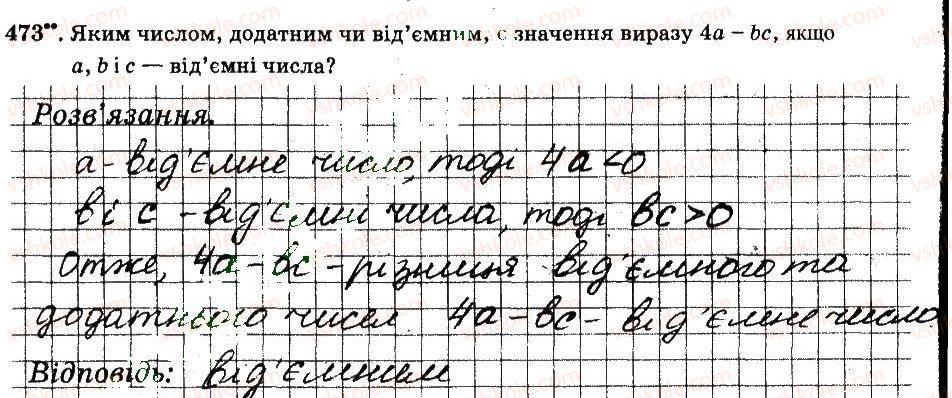 473••. Яким числом, додатним чи від’ємним, є значення виразу 4a – bc, якщо
a, b і c — від’ємні числа?
Розв’язання.
a - від'ємне число, тоді 4a < 0
b і c - від'ємні числа, тоді bc > 0
Отже, 4a - bc - різниця від'ємного та
додатнього чисел 4a - bc - від'ємне число
Відповідь: від'ємним